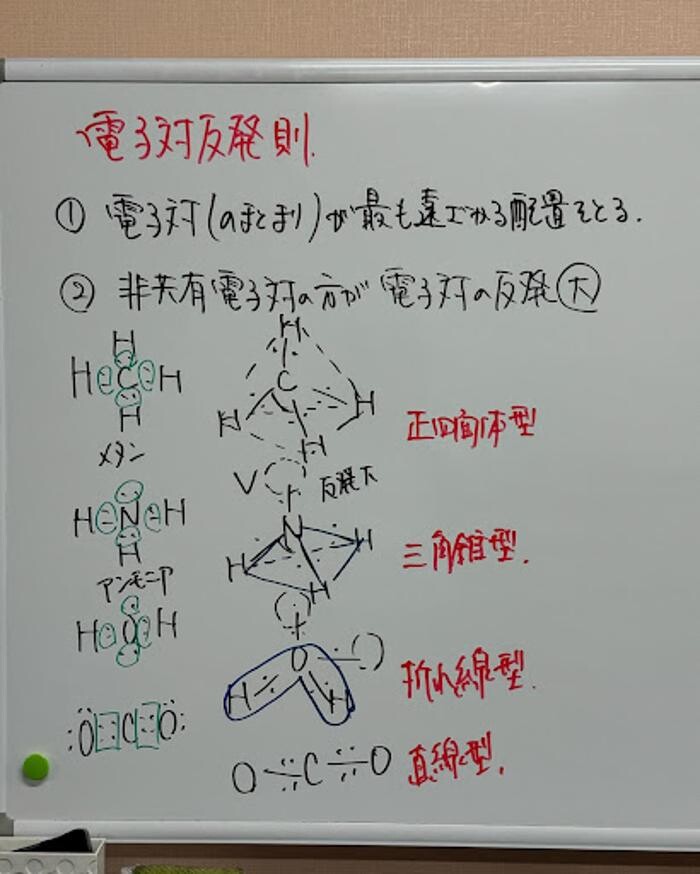 電子対反発則.
① 電子対(のまとまり)が最も遠ざかる配置をとる.
② 非共有電子対の方が電子対の反発大
H
H C H
H
メタン
H
C
H H
H
正四面体型
反発大
H N H
H
アンモニア
N
H H
H
三角錐型.
H O H
O
H H
折れ線型.
:Ö::C::Ö:
O::C::O
直線型.